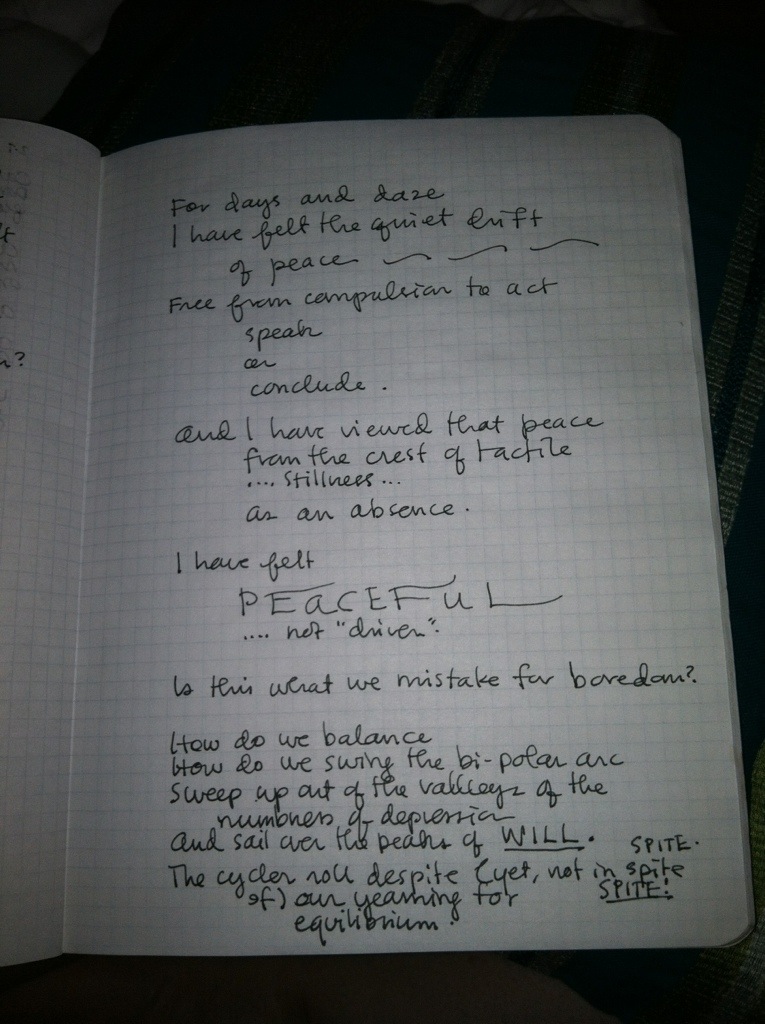 For days and daze
I have felt the quiet drift
of peace
Free from compulsion to act
speak
or
conclude.
and I have viewed that peace
from the crest of tactile
.... stillness ...
as an absence.
I have felt
PEACEFUL
.... not "driven".
Is this what we mistake for boredom?
How do we balance
How do we swing the bi-polar arc
Sweep up out of the valleys of the
numbness of depression
and sail over the peaks of WILL.
SPITE.
The cycles roll despite (yet, not in spite
of) our yearning for
SPITE!
equilibrium.
n?